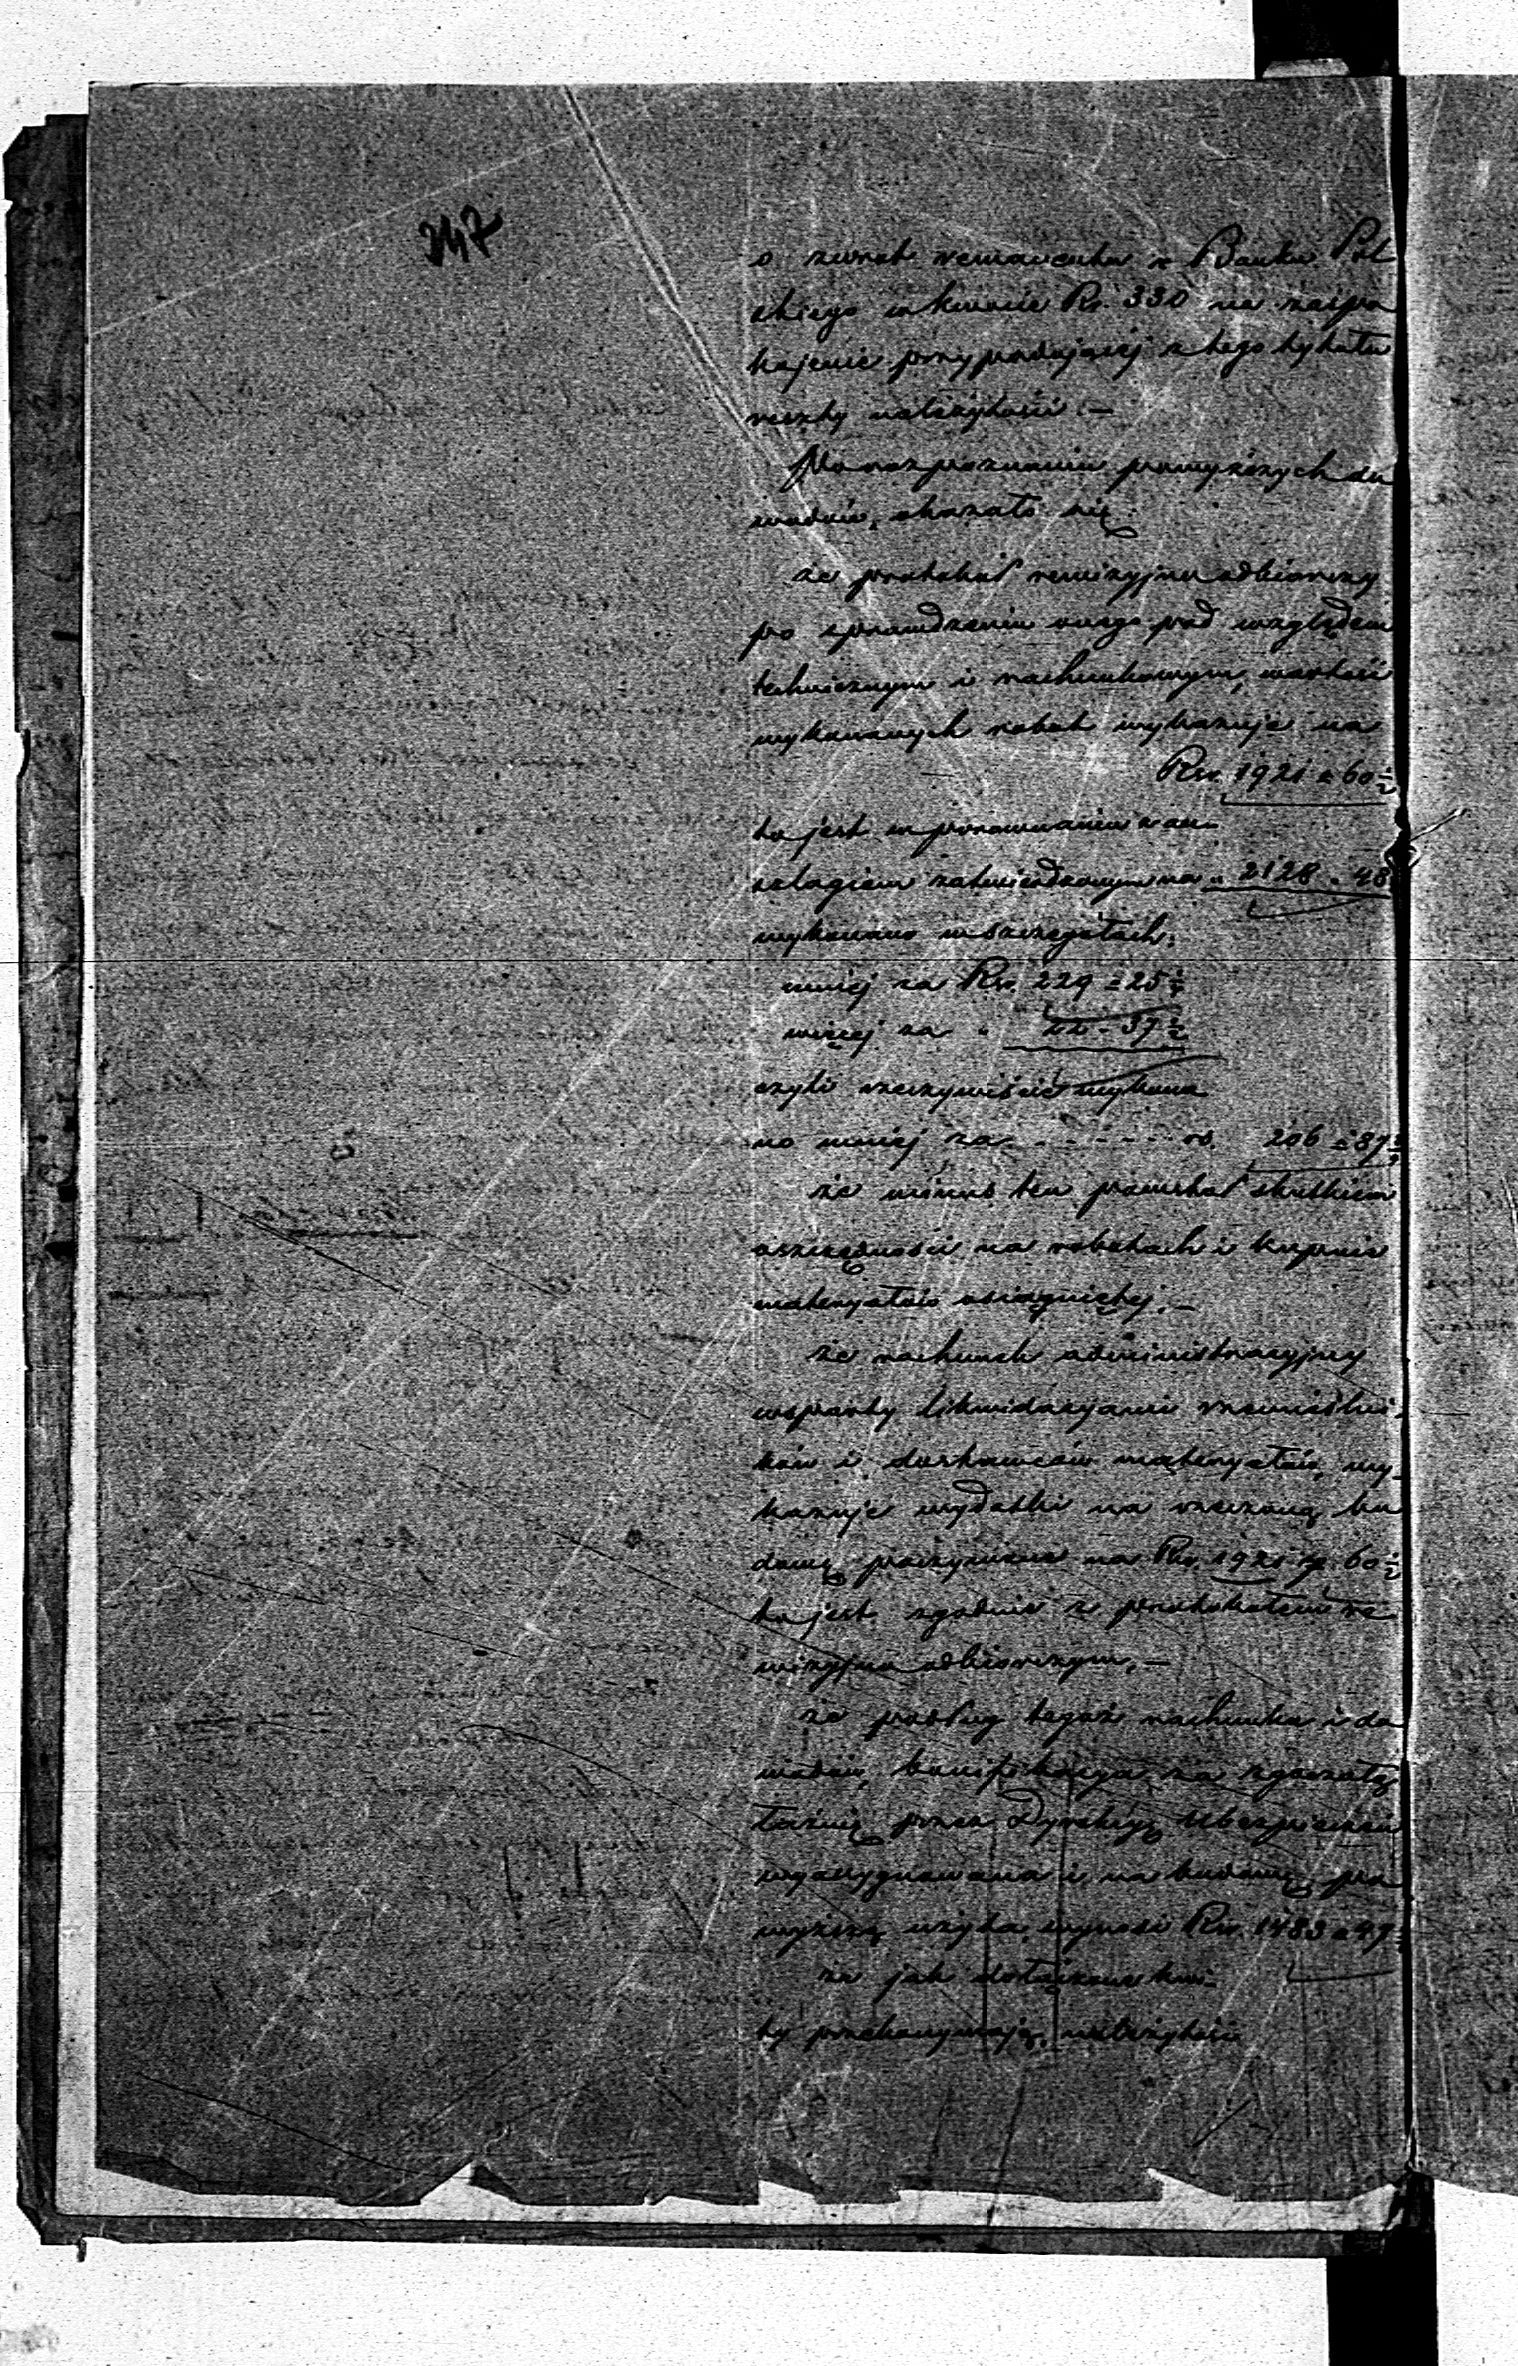 347
o zwrot remanentu z Banku Pol
skiego w kwocie Rs. 330 na zaspo
kojenie przypadającej z tego tytułu
reszty należytości. —
Po rozpoznaniu powyższych do
wodów, okazało się:
że protokół rewizyjno odbiorczy
po sprawdzeniu onego pod względem
technicznym i rachunkowym, wartość
wykonanych robot wykazuje na
Rsr. 1921 k 60½
to jest w porównaniu z an-
szlagiem zatwierdzonym na „ 2128 „ 48
wykonano w szczegółach:
mniej za Rsr. 229 = 25
więcej za „ 22 - 37½
czyli rzeczywiście wykona
no mniej za - - - - - - rs. 206 = 87½
że minus ten powstał skutkiem
oszczędności na robotach i kupnie
materyałów osiągniętej. —
że rachunek administracyjny
wsparty likwidacyami rzemieślni-
ków i dostawców materyałów, wy-
kazuje wydatki na rzeczoną bu
dowę poczynione na Rsr. 1921 kp. 60½
to jest zgodnie z protokołem re
wizyjno odbiorczym. —
że podług tegoż rachunku i do
wodów, bonifikacya za zgorzałą
łaźnię przez Dyrekcyę Ubezpieczeń
wyassygnowana i na budowę po
wyższą użyta, wynosi Rsr. 1483 k 47
że jak dołączone kwi-
ty przekonywają, należytości